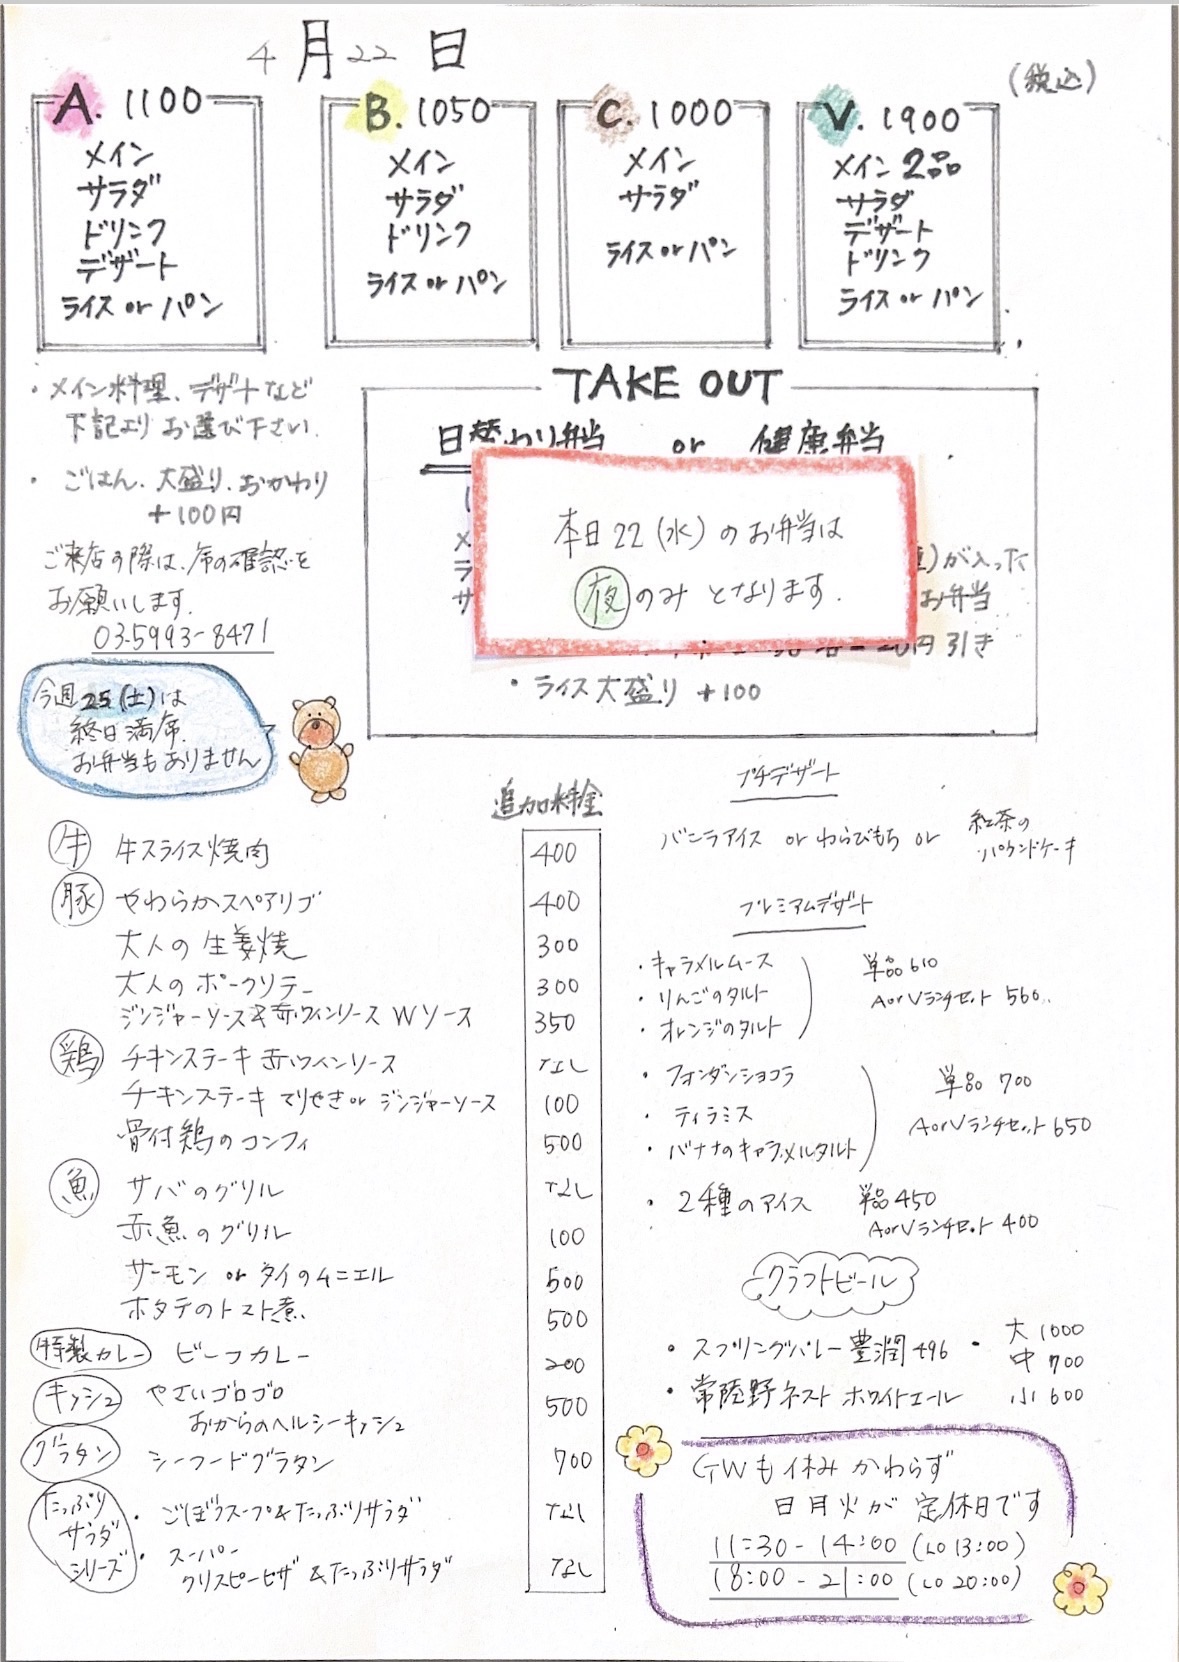 4月22日
(税込)
A. 1100
メイン
サラダ
ドリンク
デザート
ライス or パン
B. 1050
メイン
サラダ
ドリンク
ライス or パン
C. 1000
メイン
サラダ
ライス or パン
V. 1900
メイン 2品
サラダ
デザート
ドリンク
ライス or パン
・メイン料理、デザートなど
下記より お選び下さい.
・ごはん、大盛り、おかわり
+100円
ご来店の際は、席の確認を
お願いします.
03-5993-8471
TAKE OUT
日替わり弁当 or 健康弁当
本日22(水)のお弁当は
夜のみ となります.
が入った
お弁当
円引き
・ライス大盛り +100
今週25(土)は
終日満席.
お弁当もありません
追加料金
牛 牛スライス焼肉 400
豚 やわらかスペアリブ 400
大人の生姜焼 300
大人のポークソテー 300
ジンジャーソース&赤ワインソース Wソース 350
鶏 チキンステーキ 赤ワインソース なし
チキンステーキ てりやき or ジンジャーソース 100
骨付鶏のコンフィ 500
魚 サバのグリル なし
赤魚のグリル 100
サーモン or タイのムニエル 500
ホタテのトマト煮 500
特製カレー ビーフカレー 200
キッシュ やさいゴロゴロ
おからのヘルシーキッシュ 500
グラタン シーフードグラタン 700
たっぷり
サラダ
シリーズ
・ごぼうスープ&たっぷりサラダ なし
・スーパー
クリスピーピザ &たっぷりサラダ なし
プチデザート
バニラアイス or わらびもち or 紅茶の
パウンドケーキ
プレミアムデザート
・キャラメルムース
・りんごのタルト
・オレンジのタルト
単品 610
A or V ランチセット 560
・フォンダンショコラ
・ティラミス
・バナナのキャラメルタルト
単品 700
A or V ランチセット 650
・2種のアイス 単品 450
A or V ランチセット 400
クラフトビール
・スプリングバレー 豊潤 496
・常陸野ネスト ホワイトエール
・大 1000
中 700
小 600
GWも休み かわらず
日月火が 定休日です
11:30 - 14:00 (LO 13:00)
18:00 - 21:00 (LO 20:00)